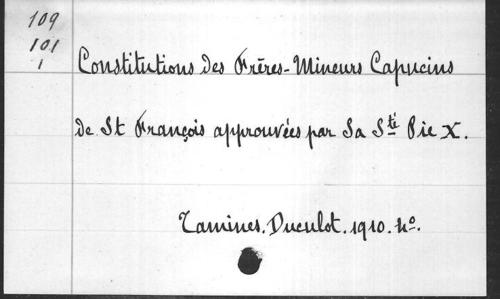 109
101
1
Constitutions des Frères-Mineurs Capucins
de St François approuvées par Sa Sté Pie X.
Tamines. Duculot. 1910. 4o.